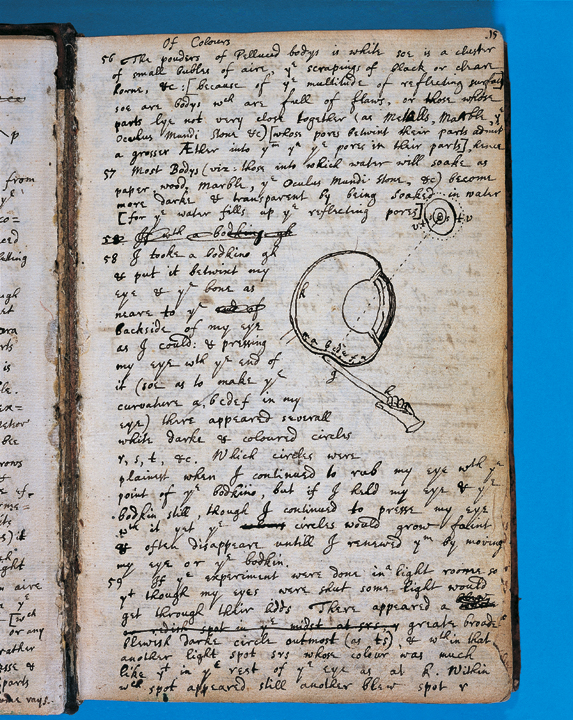 Of Colours
15
56 The pouders of Pellucid bodys is white soe is a cluster
of small bubles of aire, yᵉ scrapings of black or cleare
horne, &c: [because of yᵉ multitude of reflecting surfaces]
soe are bodys wᶜʰ are full of flaws, or those whose
parts lye not very close together (as Metalls, Marble, yᵉ
Oculus Mundi Stone &c) [whose pores betwixt their parts admit
a grosser Æther into yᵐ yⁿ yᵉ pores in their parts], hence
57 Most Bodys (viz: those into which water will soake as
paper, wood, Marble, yᵉ Oculus Mundi Stone, &c) become
more darke & transparent by being Soaked in water
[for yᵉ water fills up yᵉ reflecting pores]
58
58 I tooke a bodkine gh
& put it betwixt my
eye & yᵉ bone as
neare to yᵉ
backside of my eye
as I could: & pressing
my eye wᵗʰ yᵉ end of
it (soe as to make yᵉ
curvature a, bcdef in my
eye) there appeared severall
white darke & coloured circles
r, s, t, &c. Which circles were
plainest when I continued to rub my eye wᵗʰ yᵉ
point of yᵉ bodkine, but if I held my eye & yᵉ
bodkin still, though I continued to presse my eye
wᵗʰ it yet yᵉ circles would grow faint
& often disappeare untill I renewed yᵐ by moving
my eye or yᵉ bodkin.
59 If yᵉ experiment were done in a light roome so
yᵗ though my eyes were shut some light would
get through their lidds There appeared a
greate broade
blewish darke circle outmost (as ts), & wᵗʰin that
another light spot srs whose colour was much
like yᵗ in yᵉ rest of yᵉ eye as at k. Within
wᶜʰ spot appeared still another blew spot r